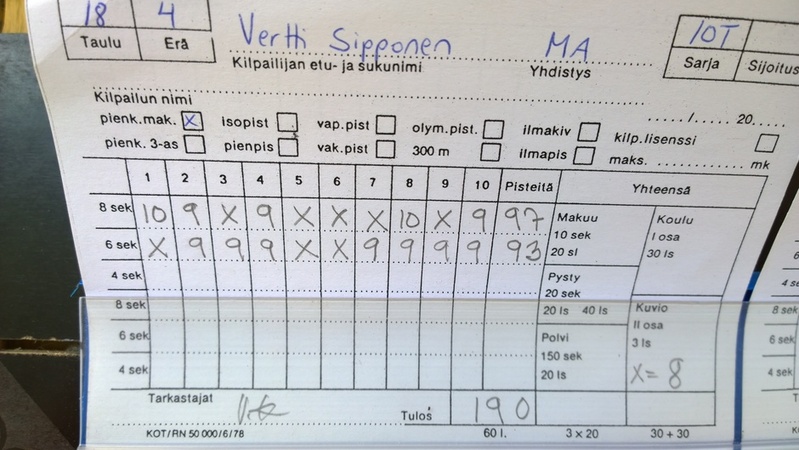 18 4
Taulu Erä
Vertti Sipponen MA
Kilpailijan etu- ja sukunimi Yhdistys
10T
Sarja Sijoitus
Kilpailun nimi
...../..... 20.....
pienk.mak. X isopist vap.pist olym.pist. ilmakiv kilp.lisenssi
pienk. 3-as pienpis vak.pist 300 m ilmapis maks. ............... mk
1 2 3 4 5 6 7 8 9 10 Pisteitä Yhteensä
8 sek 10 9 X 9 X X X 10 X 9 97
6 sek X 9 9 9 X X 9 9 9 9 93
4 sek
8 sek
6 sek
4 sek
Makuu
10 sek
20 sl
Koulu
I osa
30 ls
Pysty
20 sek
20 ls 40 ls
Kuvio
II osa
3 ls
Polvi
150 sek
20 ls
X= 8
Tarkastajat Tulos 190
KOT/RN 50 000/6/78 60 l. 3 x 20 30 + 30
6
4 se
8 sek
6 sek
4 sek